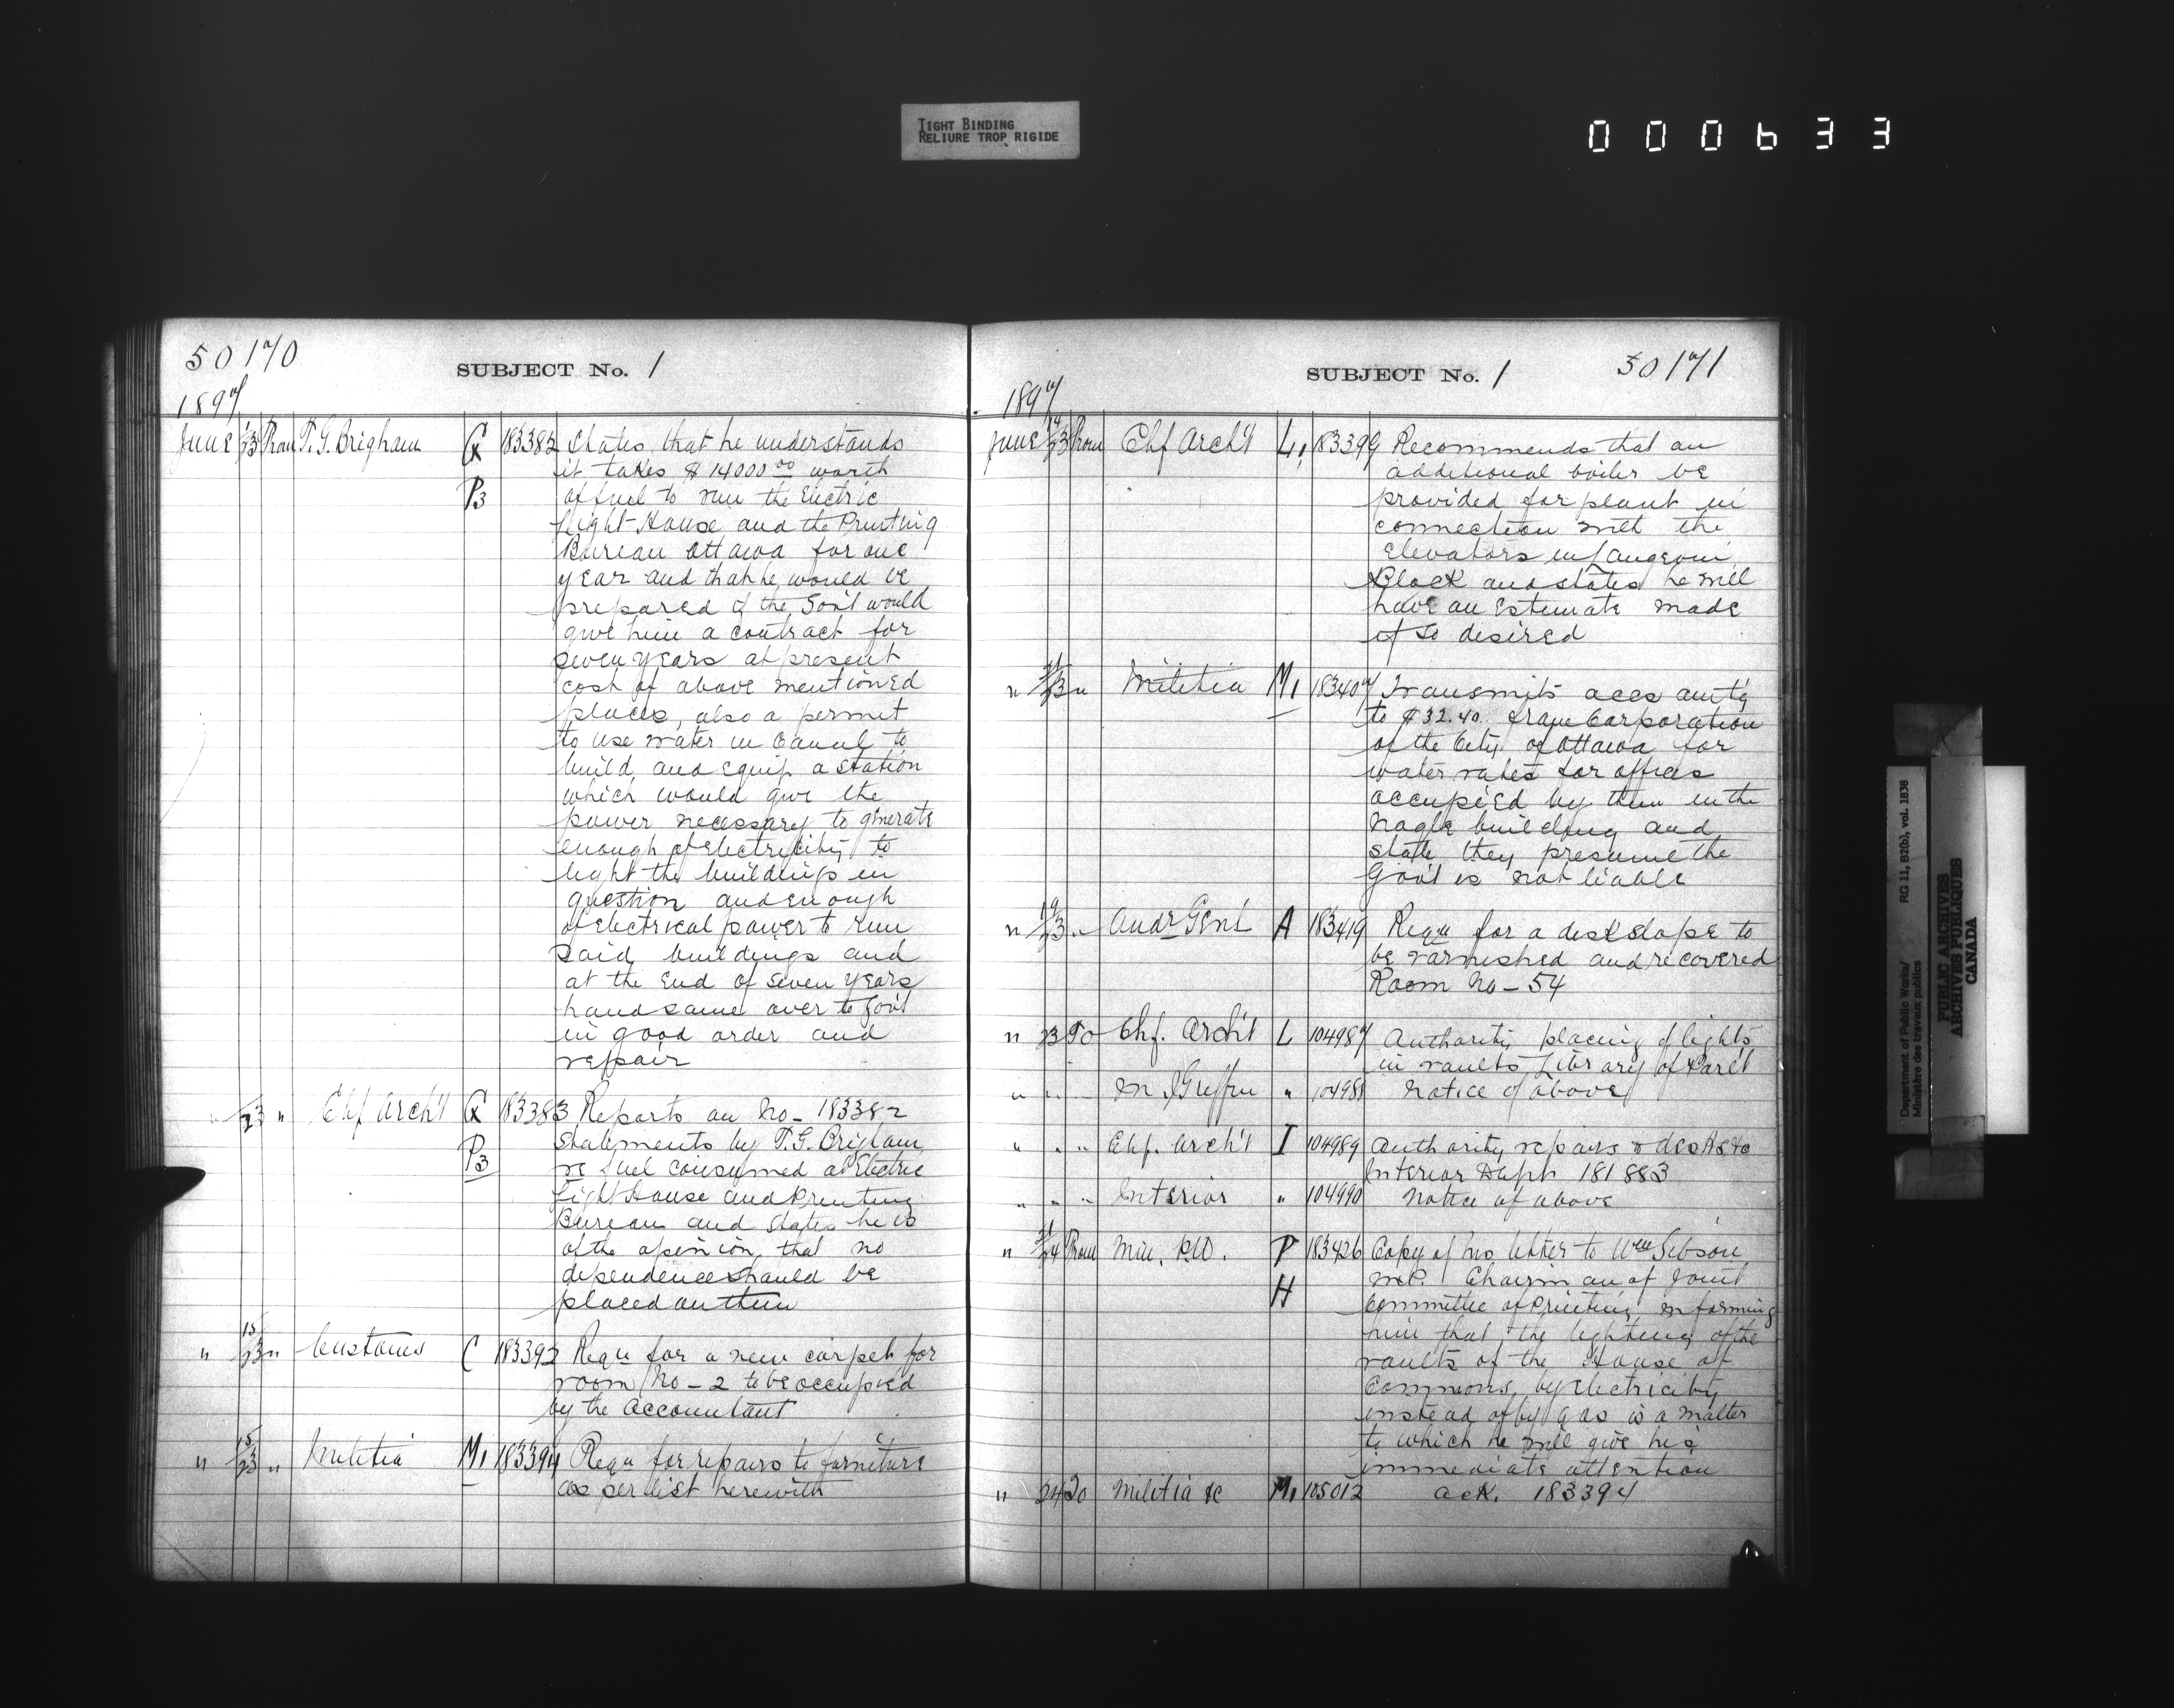 TIGHT BINDING
RELIURE TROP RIGIDE
000633
50170
SUBJECT No. 1
1897
June 13/23 From T. G. Brigham G P3 183382 States that he understands
it takes $14000.00 worth
of fuel to run the Electric
Light House and the Printing
Bureau Ottawa for one
year and that he would be
prepared if the Gov't would
give him a contract for
seven years at present
cost of above mentioned
places, also a permit
to use water in Canal to
build and equip a station
which would give the
power necessary to generate
enough of electricity to
light the buildings in
question and enough
of electrical power to run
said buildings and
at the end of seven years
hand same over to Gov't
in good order and
repair
" /23 " Chf Arch't G P3 183383 Reports on No - 183382
statements by T. G. Brigham
re fuel consumed at Electric
Light House and Printing
Bureau and states he is
of the opinion that no
dependence should be
placed on them
" 15/23 " Customs C 183392 Requ for a new carpet for
room No - 2 to be occupied
by the Accountant
" 15/23 " Militia M1 183394 Requ for repairs to furniture
as per list herewith
SUBJECT No. 1
50171
1897
June 14/23 From Chf Arch't L1 183399 Recommends that an
additional boiler be
provided for plant in
connection with the
elevators in Langevin
Block and states he will
have an estimate made
if so desired
" 21/23 " Militia M1 183407 Transmits accs am'tg
to $32.40 from Corporation
of the City of Ottawa for
water rates for offices
occupied by them in the
Nagle building and
state they presume the
Gov't is not liable
" 19/23 " Audr Genl A 183419 Requ for a desk slope to
be varnished and recovered
Room No - 54
" 23 To Chf. Arch't L 104987 Authority placing of lights
in vaults Library of Parl't
" " " M J Griffin " 104988 Notice of above
" " " Chf. Arch't I 104989 Authority repairs to desks &c
Interior Dept 181883
" " " Interior " 104990 Notice of above
" 21/24 From Min. P.W. P H 183426 Copy of his letter to Wm Gibson
M.P. Chairman of Joint
Committee of Printing informing
him that the lighting of the
vaults of the House of
Commons, by electricity
instead of by gas is a matter
to which he will give his
immediate attention
" 24 To Militia &c M1 105012 ack. 183394
Department of Public Works/ RG 11, B2(b), vol. 1838
Ministère des travaux publics
PUBLIC ARCHIVES
ARCHIVES PUBLIQUES
CANADA